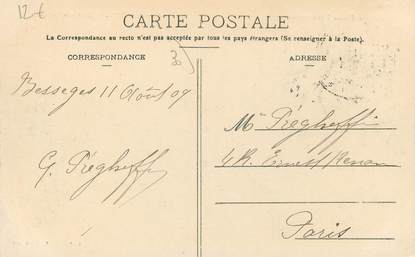 12€
CARTE POSTALE
La Correspondance au recto n'est pas acceptée par tous les pays étrangers (Se renseigner à la Poste).
CORRESPONDANCE
ADRESSE
Bessèges 11 Août 09
G. Pégheffi
Mr Pégheffi
4 R. Ernest Renan
Paris